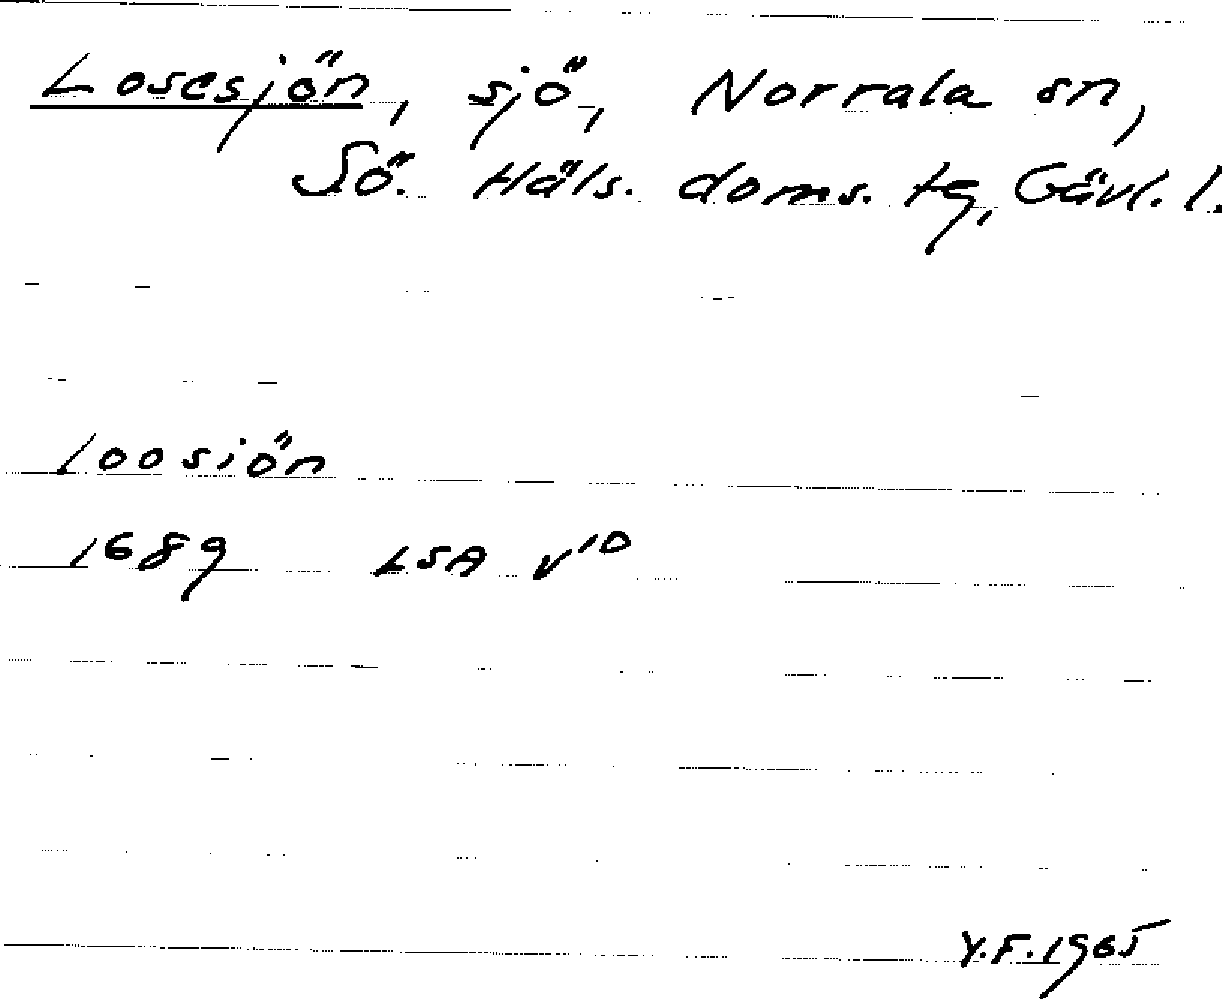 Losesjön, sjö, Norrala sn,
Sö. Häls. doms. tg, Gävl. l.
loosiön
1689 LSA v10
Y.F. 1965